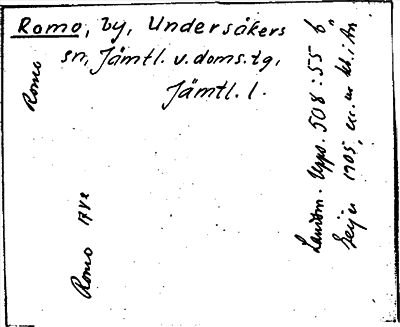 Romo, by, Undersåkers
sn, Jämtl. v. doms.tg,
Jämtl. l.
Romo
Romo 1742
Landtm. Upps. 508:55 b
1705,